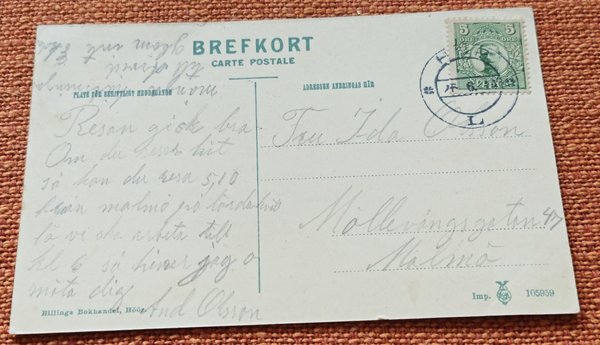 BREFKORT
CARTE POSTALE
PLATS FÖR SKRIFTLIGT MEDDELANDE
ADRESSEN ANBRINGAS HÄR
5 5
Resan gick bra
Om du reser hit
så kan du resa 5,10
från malmö på lördakväll
få vi sta arbeta till
kl 6 så hinner jag o
möta dig
And Olsson
till
glöm inte
Fru Ida Olsson
Möllevångsgatan 47
Malmö
L
Billings Bokhandel, Höör.
Imp. 105959